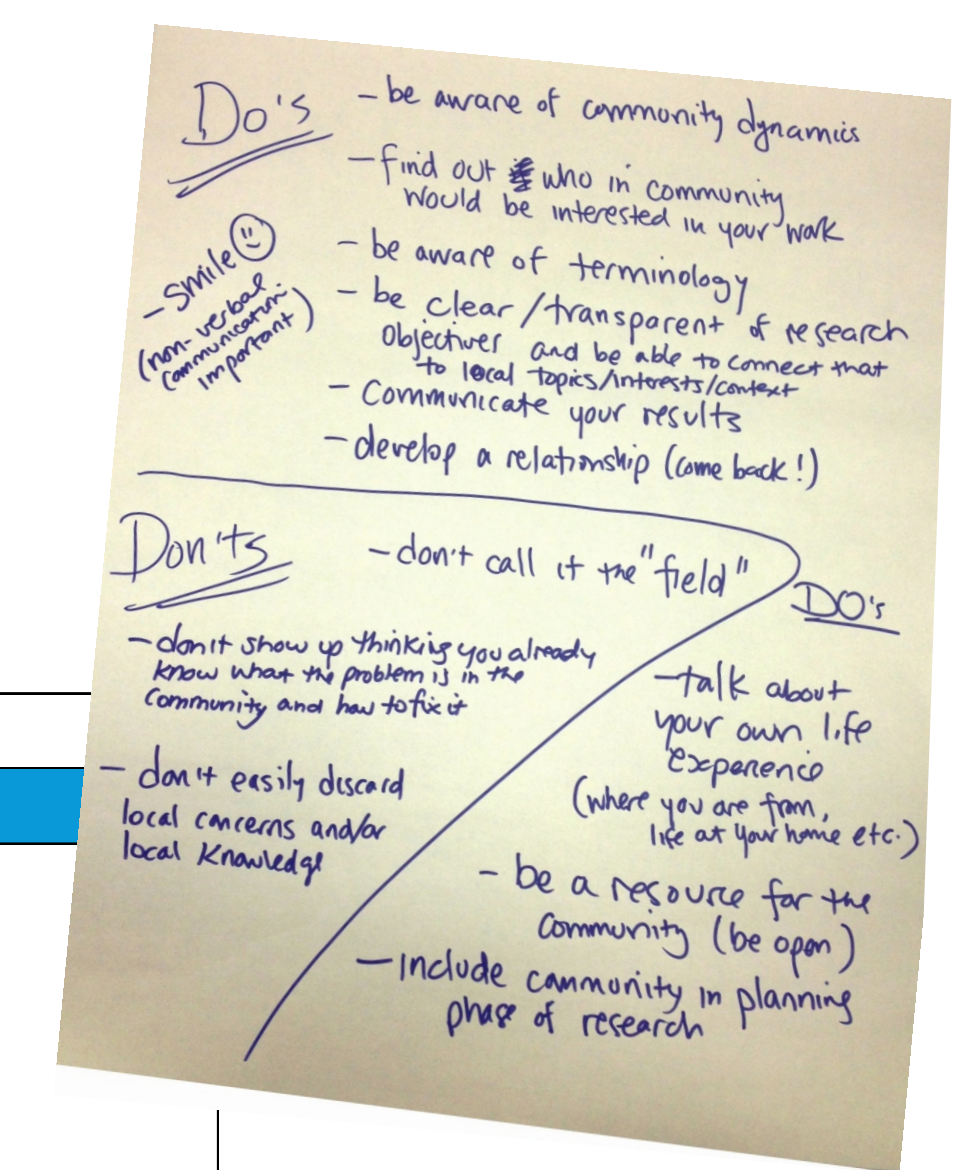 Do's
- be aware of community dynamics
- find out who in community
would be interested in your work
- be aware of terminology
- be clear/transparent of research
objectives and be able to connect that
to local topics/interests/context
- Communicate your results
- develop a relationship (come back!)
- smile
(non-verbal
communication
important)
Don'ts
- don't call it the "field"
- don't show up thinking you already
know what the problem is in the
community and how to fix it
- don't easily discard
local concerns and/or
local knowledge
DO's
- talk about
your own life
experience
(where you are from,
life at your home etc.)
- be a resource for the
community (be open)
- include community in planning
phase of research